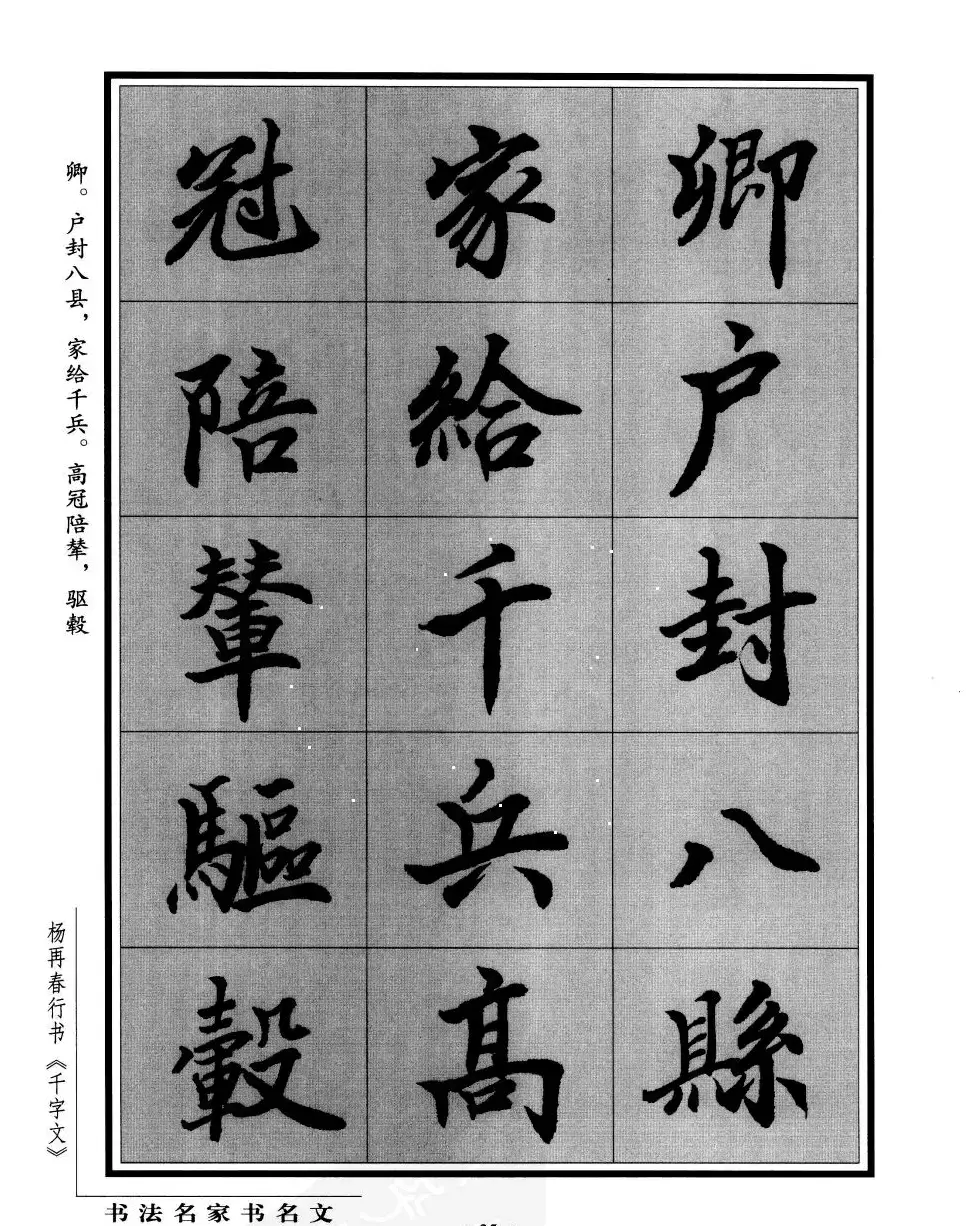 卿户封八縣
家給千兵高
冠陪輦驅轂
卿。户封八县，家给千兵。高冠陪辇，驱毂
杨再春行书《千字文》
书法名家书名文